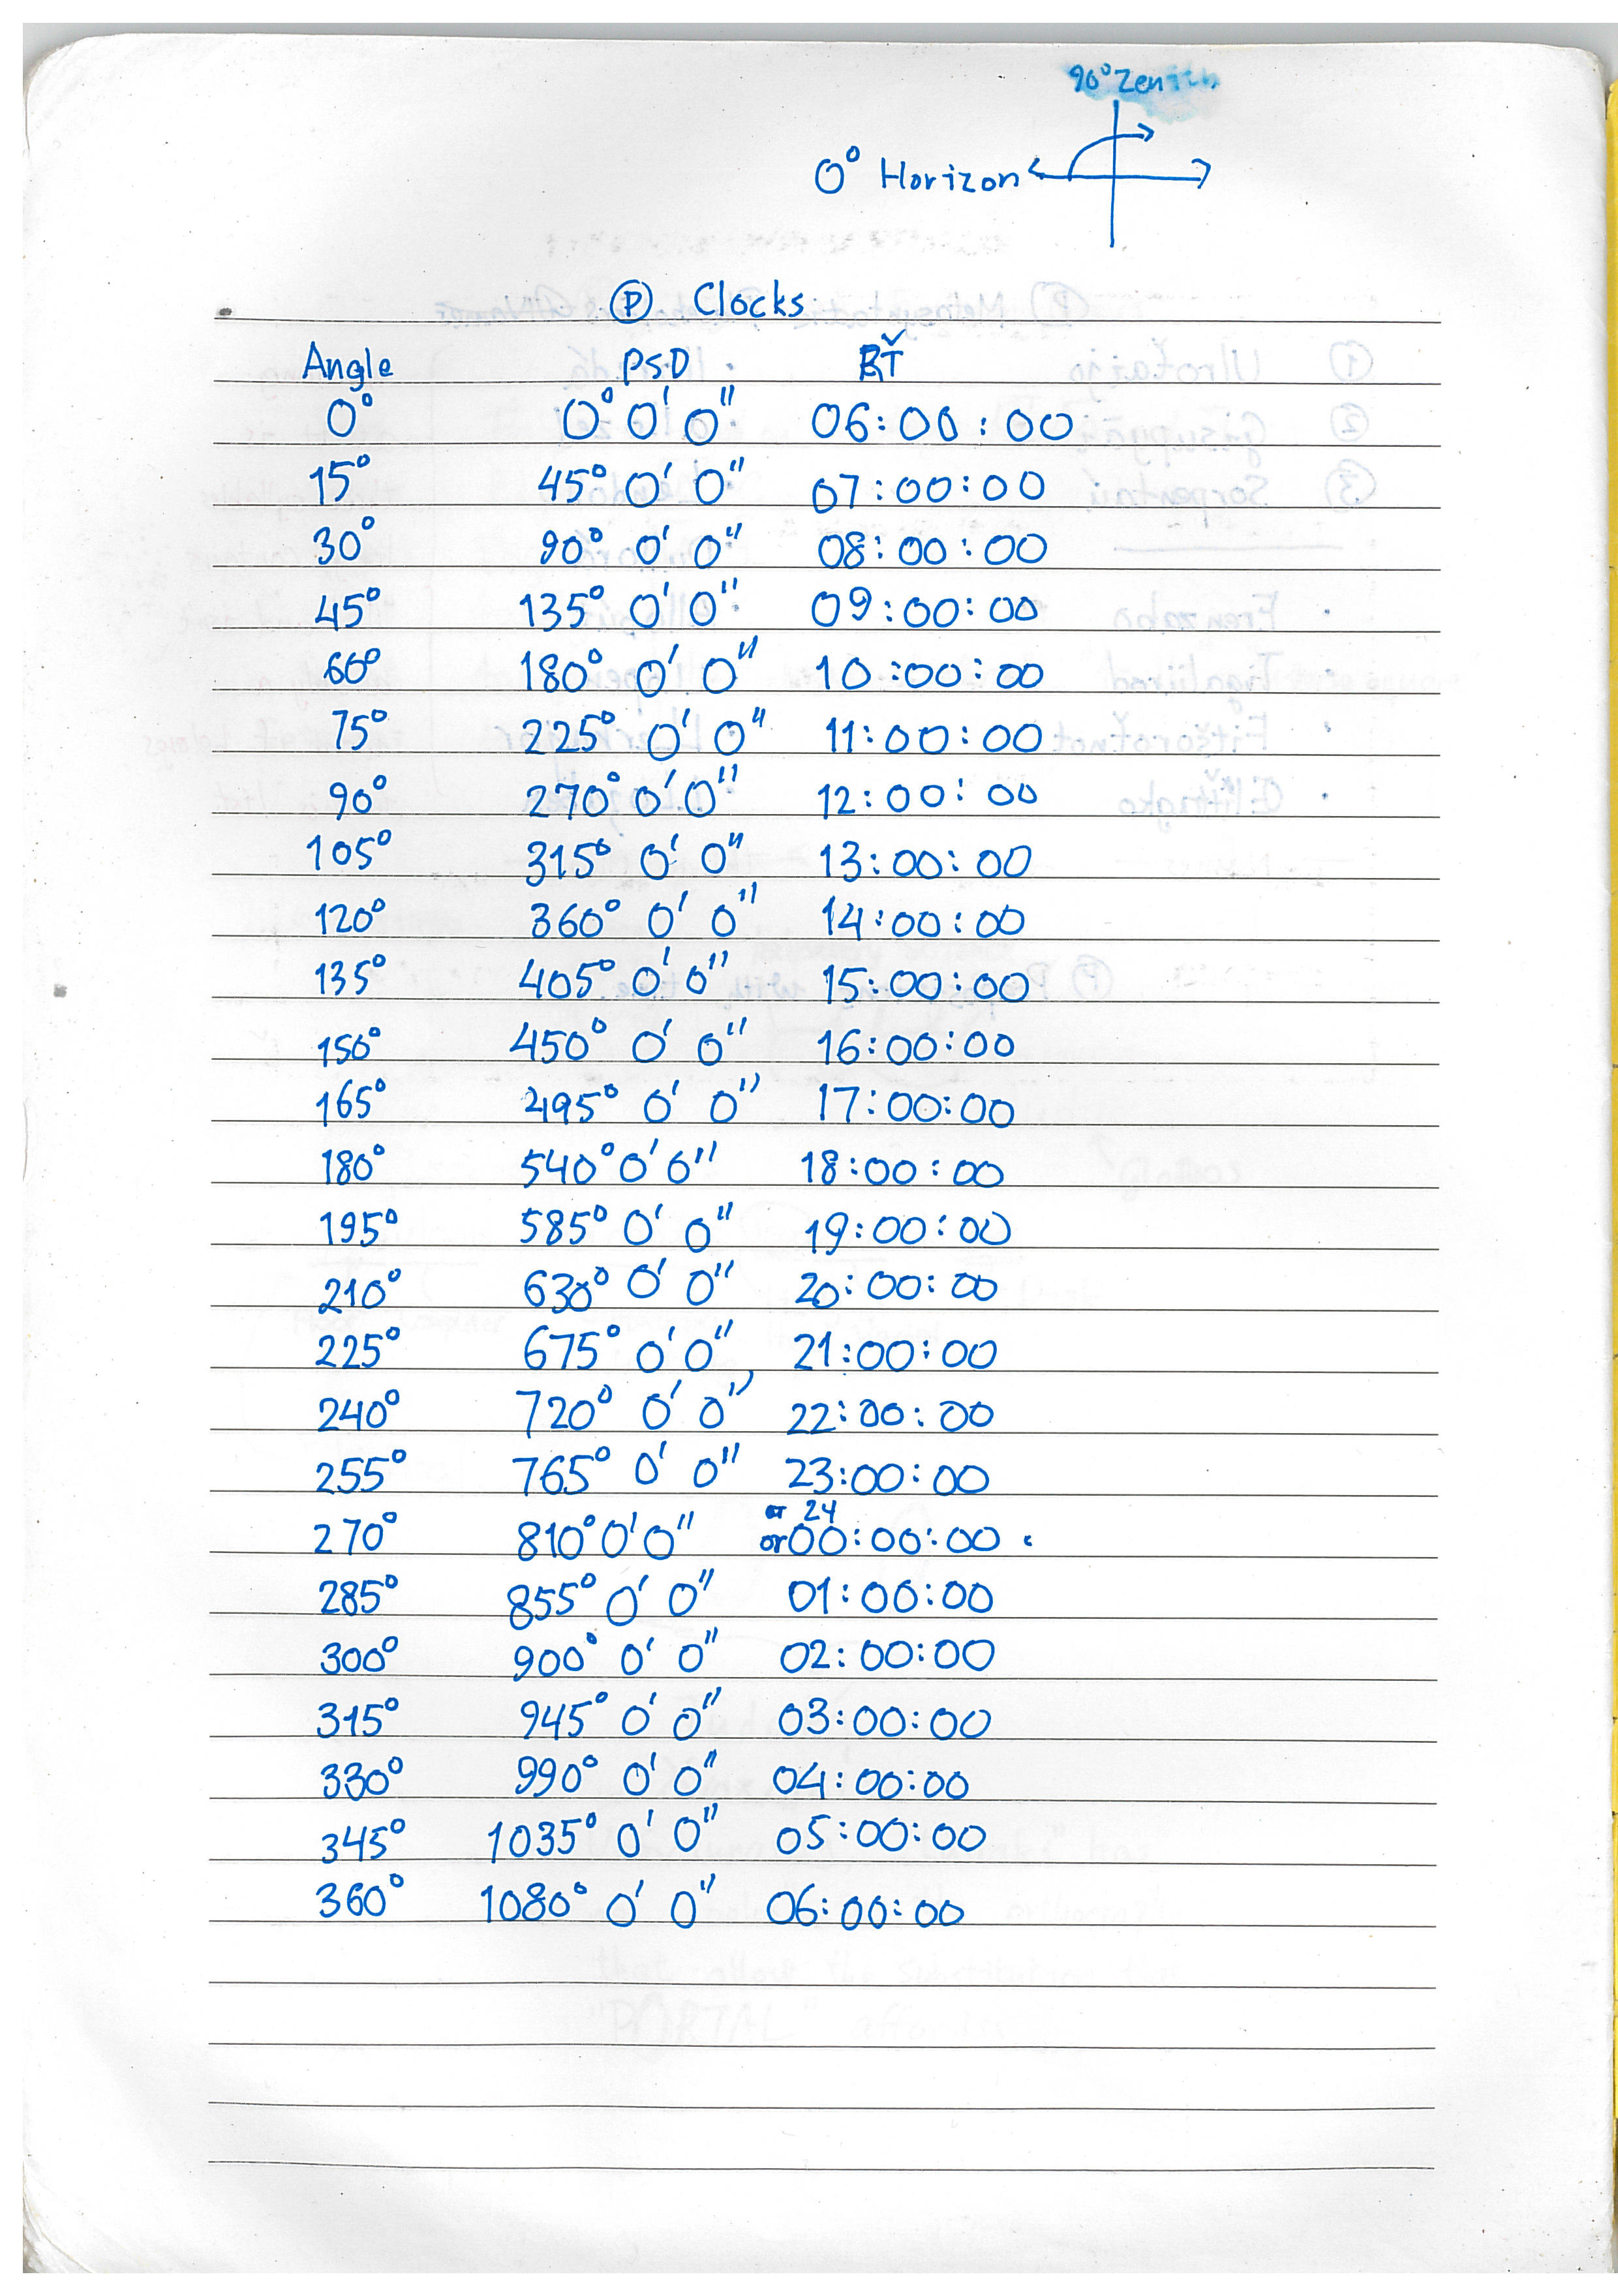 90° Zenith
0° Horizon
Ⓟ Clocks
Angle PSD BŤ
0° 0° 0' 0" 06:00:00
15° 45° 0' 0" 07:00:00
30° 90° 0' 0" 08:00:00
45° 135° 0' 0" 09:00:00
60° 180° 0' 0" 10:00:00
75° 225° 0' 0" 11:00:00
90° 270° 0' 0" 12:00:00
105° 315° 0' 0" 13:00:00
120° 360° 0' 0" 14:00:00
135° 405° 0' 0" 15:00:00
150° 450° 0' 0" 16:00:00
165° 495° 0' 0" 17:00:00
180° 540° 0' 0" 18:00:00
195° 585° 0' 0" 19:00:00
210° 630° 0' 0" 20:00:00
225° 675° 0' 0" 21:00:00
240° 720° 0' 0" 22:00:00
255° 765° 0' 0" 23:00:00
24
270° 810° 0' 0" or 00:00:00
285° 855° 0' 0" 01:00:00
300° 900° 0' 0" 02:00:00
315° 945° 0' 0" 03:00:00
330° 990° 0' 0" 04:00:00
345° 1035° 0' 0" 05:00:00
360° 1080° 0' 0" 06:00:00